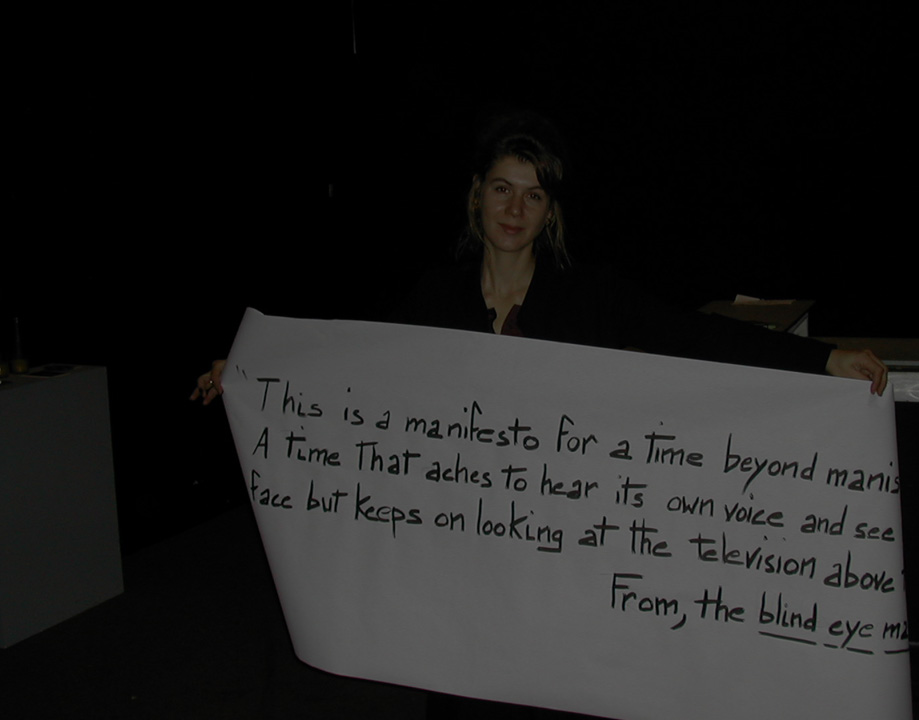 "This is a manifesto for a time beyond manis
A time that aches to hear its own voice and see
face but keeps on looking at the television above
From, the blind eye ma